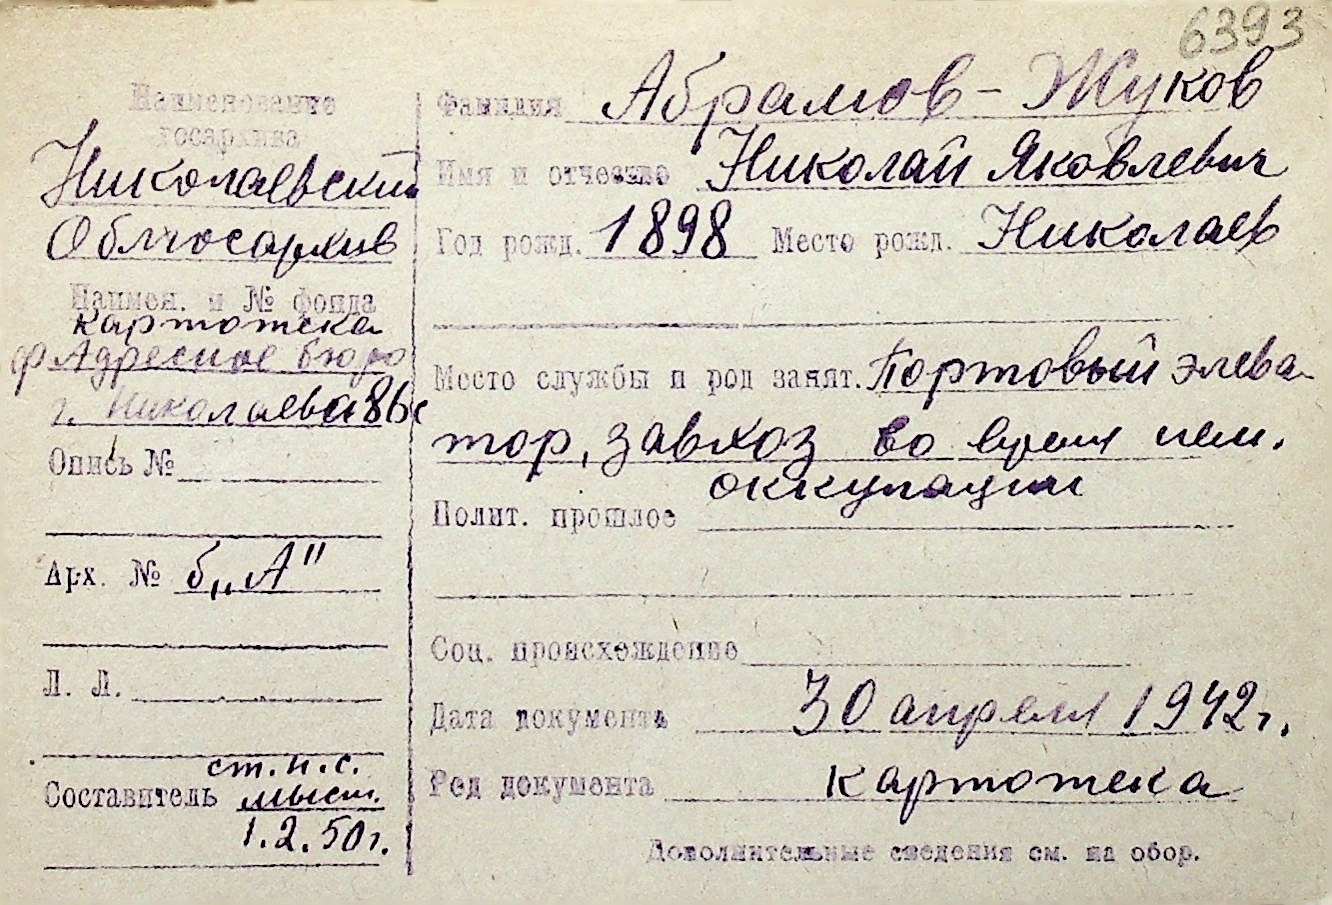 6393
Наименование
госархива
Николаевский
Облгосархив
Наимен. и № фонда
картотека
ф Адресное бюро
г. Николаева
Опись №
Арх. № б„А"
Л. Л.
ст. н. с.
Составитель
1.2.50г.
Фамилия Абрамов-Жуков
Имя и отчество Николай Яковлевич
Год рожд. 1898 Место рожд. Николаев
Место службы и род занят. Портовый элева-
тор, завхоз во время нем.
оккупации
Полит. прошлое
Соц. происхождение
Дата документа 30 апреля 1942г.
Род документа картотека
Дополнительные сведения см. на обор.